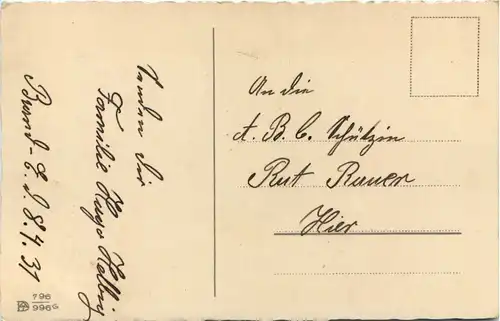 An die
A. B. C. Schützin
Rut Rauer
Hier
Familie Hugo Helbig
8.4.31
796
996 G